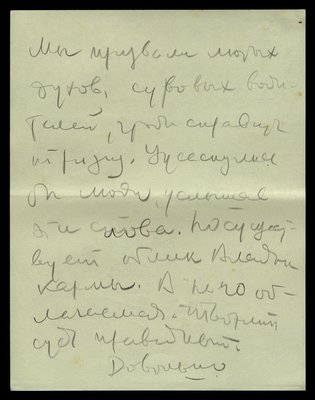 Мы призвали моих
духов, суровых води-
телей, чтобы справить
тризну. Ужаснулись
бы люди, услышав
эти слова. Но сущест-
вует облик Владыки
кармы. А небо об-
лачается. Творят
суд праведный.
Довольно